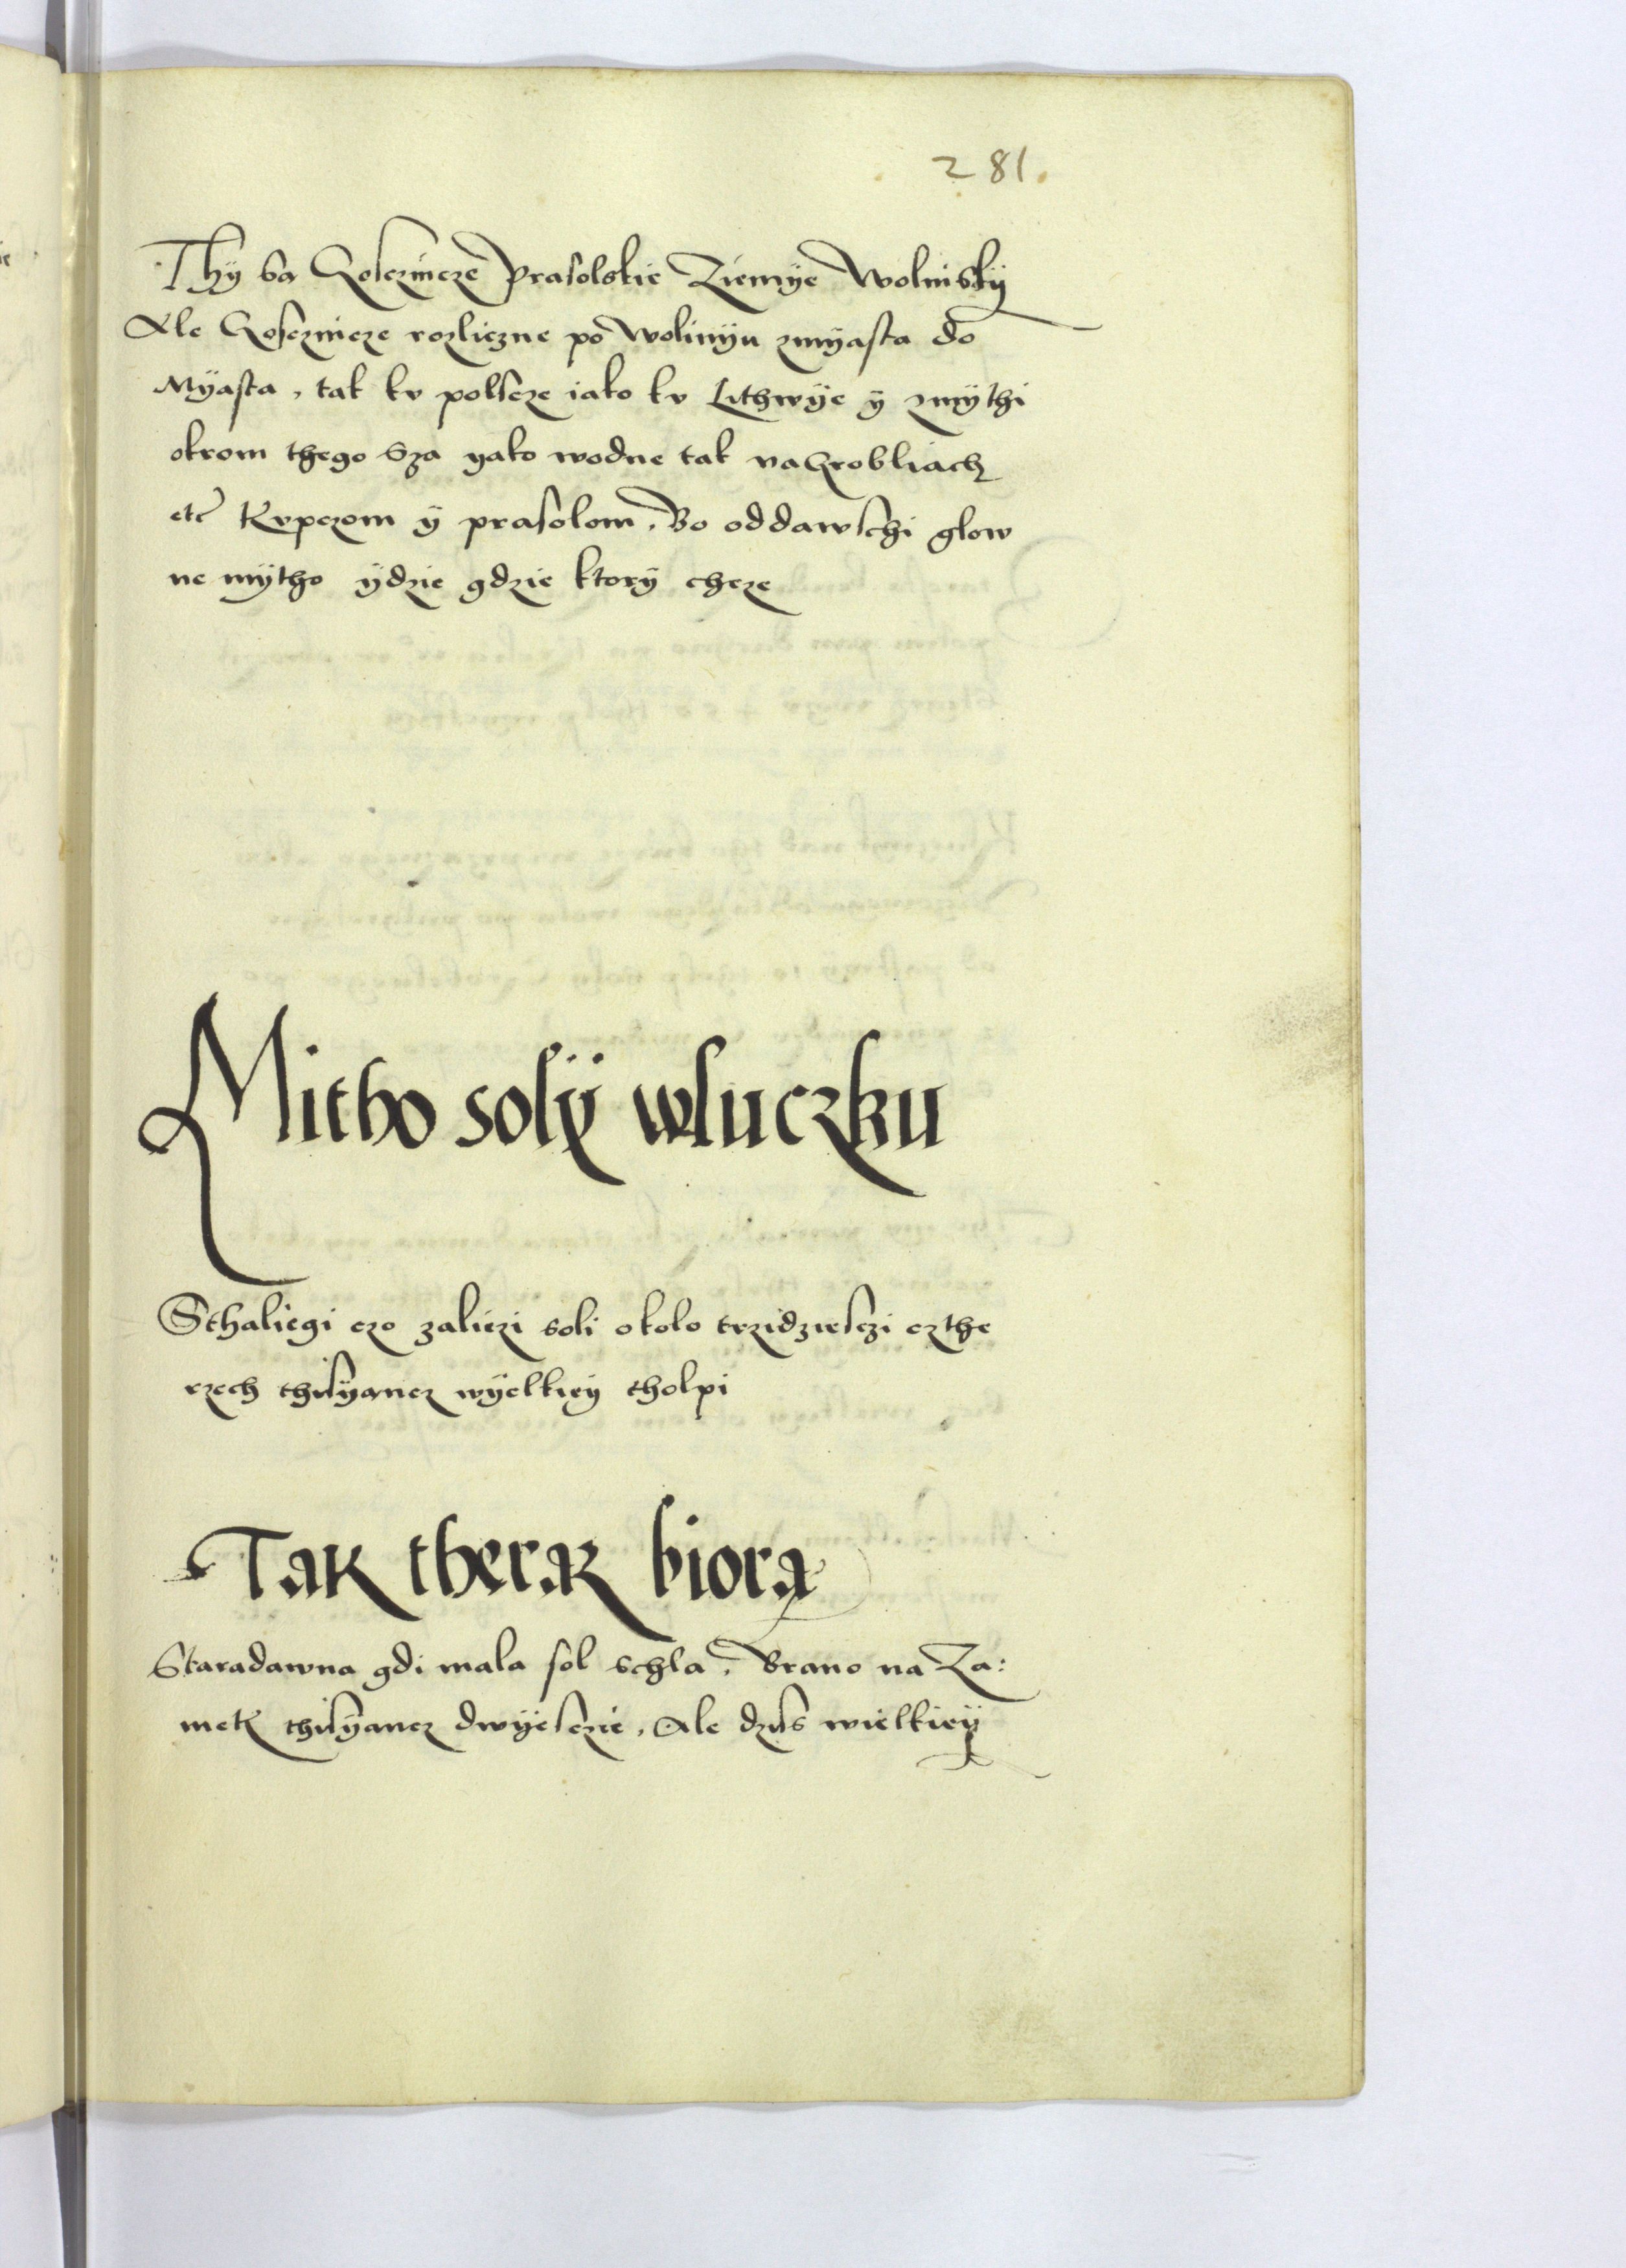 281.
Thÿ sa Gosczincze Prasolskie Ziemÿe Wolinskÿ
Ale Gosczincze rozliczne po Wolinÿu zmÿasta do
Mÿasta, tak kv polscze iako kv Lithwÿe ÿ zmÿthi
okrom thego Sza yako wodne tak na Grobliach
etc Kvpczom ÿ prasolom, Bo oddawschi glow
ne mÿtho ÿdzie gdzie ktorÿ chcze
Mitho solÿ wluczku
Sthaliegi czo zaliczi soli okolo trzidziesczi czthe
rzech thisÿancz wÿelkieÿ tholpi
Tak theraz biora
Staradawna gdi mala sol schla, Brano na Za:
mek thisÿancz dwÿesczie, Ale dzis wielkieÿ